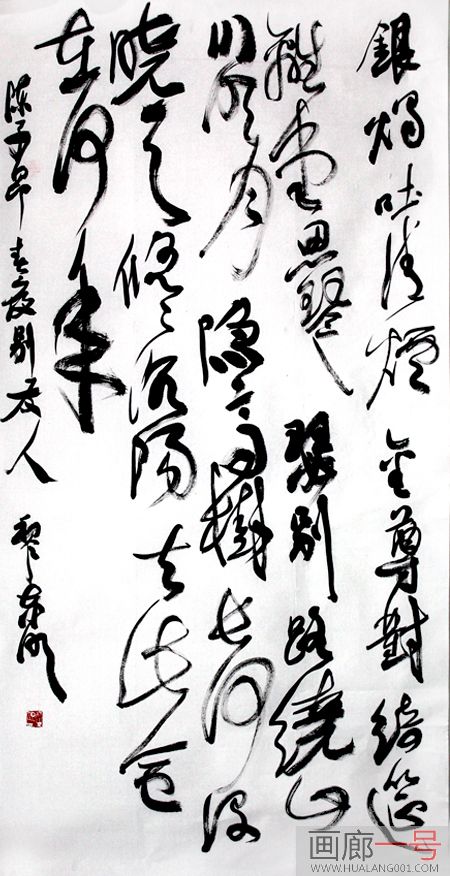 銀燭吐清煙金尊對綺筵
離堂思琴瑟別路繞山
川明月隱高樹長河没
曉天悠々洛陽去此會
在何年
陳子昂春夜別友人
画廊一号
WWW.HUALANG001.COM